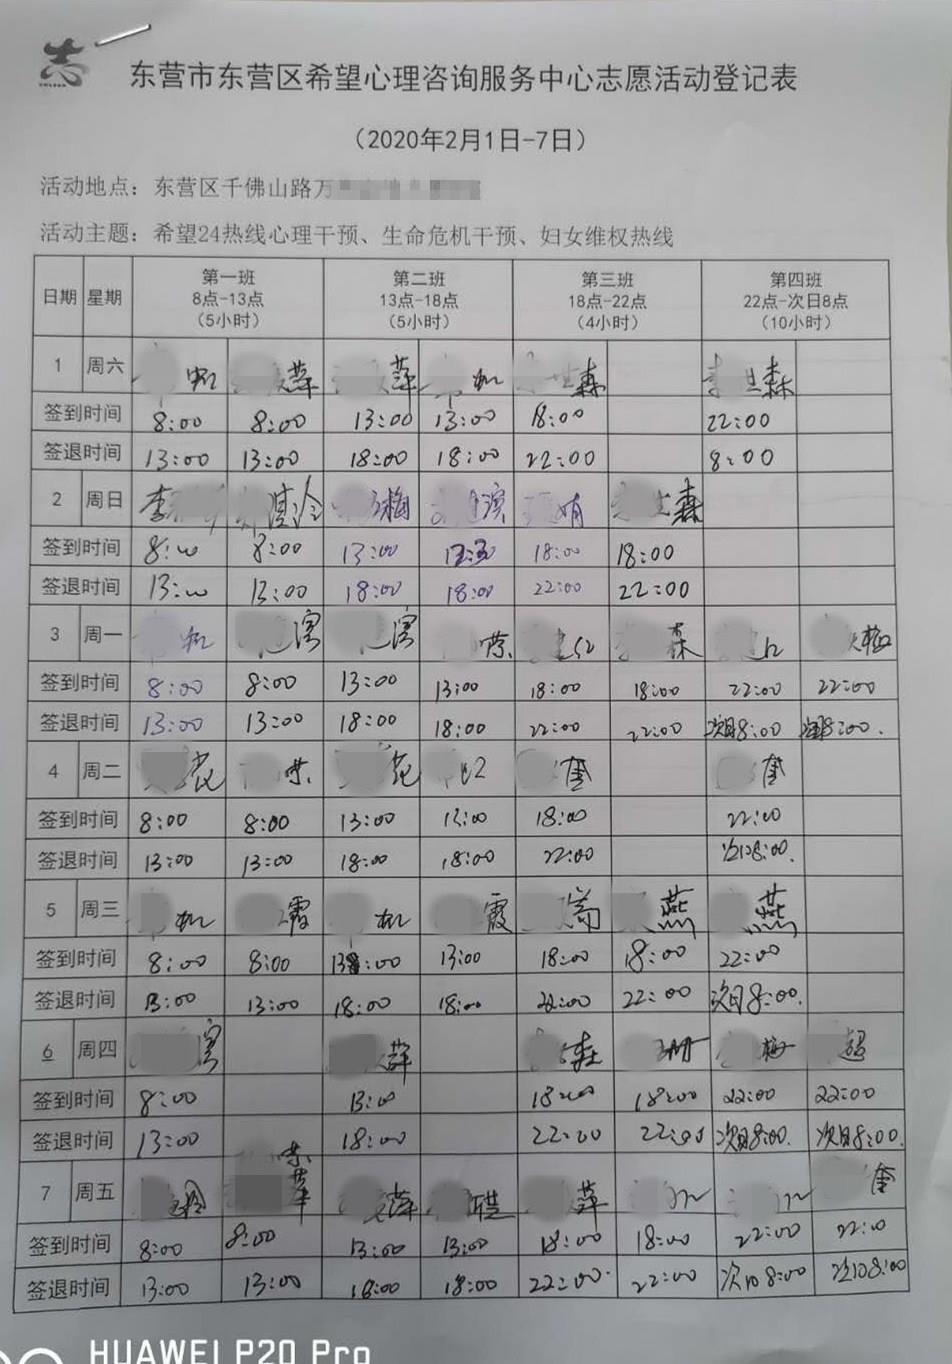 志
东营市东营区希望心理咨询服务中心志愿活动登记表
（2020年2月1日-7日）
活动地点：东营区千佛山路万
活动主题：希望24热线心理干预、生命危机干预、妇女维权热线
日期 星期 第一班 8点-13点 （5小时） 第二班 13点-18点 （5小时） 第三班 18点-22点 （4小时） 第四班 22点-次日8点 （10小时）
1 周六 萍 萍 森 森
签到时间 8:00 8:00 13:00 13:00 18:00 22:00
签退时间 13:00 13:00 18:00 18:00 22:00 8:00
2 周日 李 梅 滨 娟 森
签到时间 8:00 8:00 13:00 18:00 18:00
签退时间 13:00 13:00 18:00 18:00 22:00 22:00
3 周一 滨 滨 森 梅
签到时间 8:00 8:00 13:00 13:00 18:00 18:00 22:00 22:00
签退时间 13:00 13:00 18:00 18:00 22:00 22:00 次日8:00 8:00.
4 周二 花 花 奎 奎
签到时间 8:00 8:00 13:00 13:00 18:00 22:00
签退时间 13:00 13:00 18:00 18:00 22:00 次日8:00.
5 周三 霞 霞 燕 燕
签到时间 8:00 8:00 13:00 13:00 18:00 18:00 22:00
签退时间 13:00 13:00 18:00 18:00 22:00 22:00 次日8:00.
6 周四 滨 群 梅 超
签到时间 8:00 13:00 18:00 18:00 22:00 22:00
签退时间 13:00 18:00 22:00 22:00 次日8:00. 次日8:00.
7 周五 萍 萍 奎
签到时间 8:00 8:00 13:00 13:00 18:00 18:00 22:00 22:00
签退时间 13:00 13:00 18:00 18:00 22:00. 22:00 次日8:00 次日8:00
HUAWEI P20 Pro